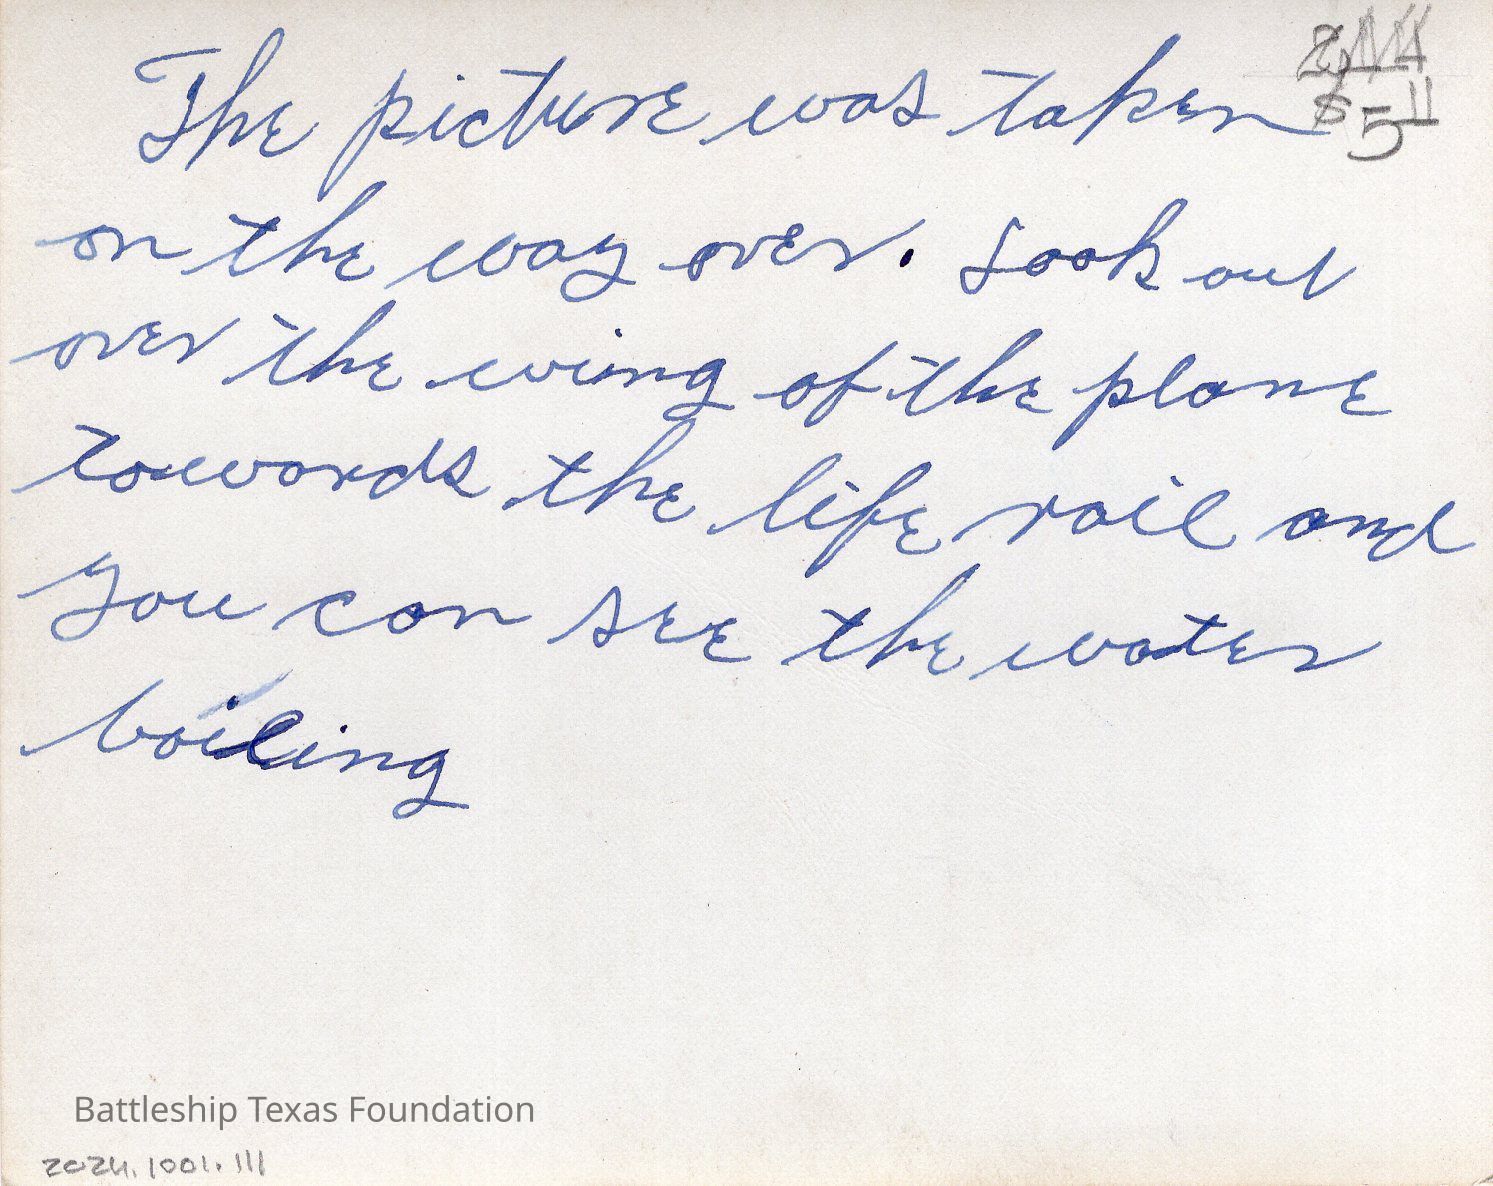 The picture was taken
$5
on the way over. Look out
over the wing of the plane
towards the life rail and
you can see the water
boiling
Battleship Texas Foundation
2024.1001.111